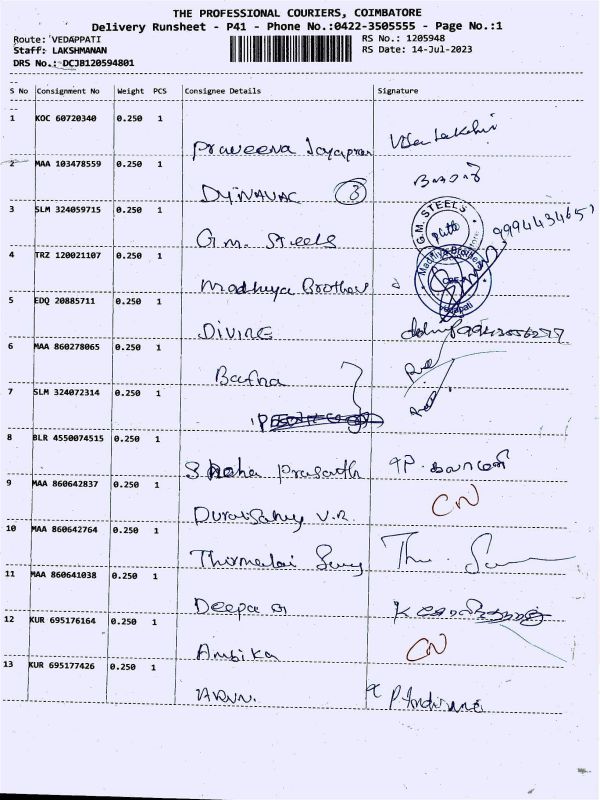 THE PROFESSIONAL COURIERS, COIMBATORE
Delivery Runsheet - P41 - Phone No.:0422-3505555 - Page No.:1
Route: VEDAPPATI RS No.: 1205948
Staff: LAKSHMANAN RS Date: 14-Jul-2023
DRS No.: DCJB120594801
S No Consignment No Weight PCS Consignee Details Signature
1 KOC 60720340 0.250 1
Praveena
2 MAA 103478559 0.250 1
DYNAVAC 3
3 SLM 324059715 0.250 1
G.M. STEELS
G.M. Steels
4 TRZ 120021107 0.250 1
Madhiya Brothers
Vedapati
5 EDQ 20885711 0.250 1
DIVINE
6 MAA 860278065 0.250 1
Bafna
7 SLM 324072314 0.250 1
8 BLR 4550074515 0.250 1
Sneha Prasath
9 MAA 860642837 0.250 1
CN
Duraisamy V.R.
10 MAA 860642764 0.250 1
Thirmalai Samy
11 MAA 860641038 0.250 1
Deepa
12 KUR 695176164 0.250 1
CN
Ambika
13 KUR 695177426 0.250 1
ARUN.